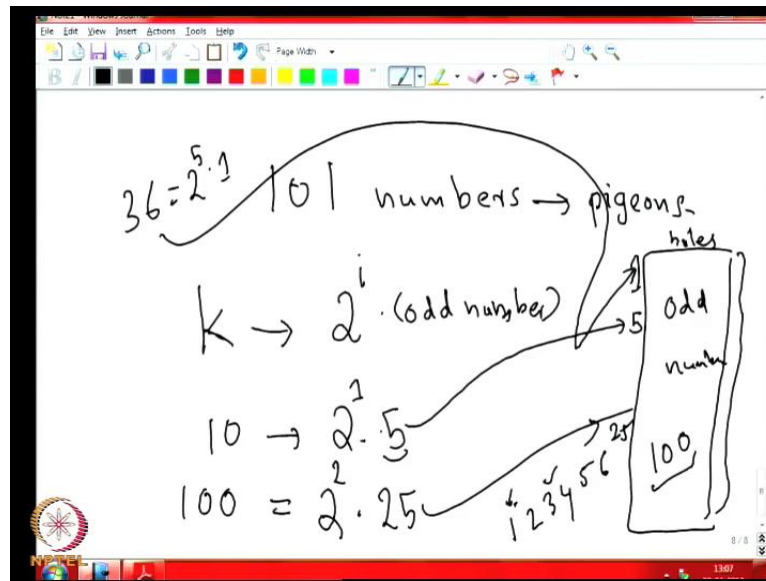 Note1 - Windows Journal
File Edit View Insert Actions Tools Help
Page Width
36 = 2^5 · 1
101 numbers → pigeons
holes
k → 2^i · (odd number)
1
5
odd
number
100
10 → 2^1 · 5
100 = 2^2 · 25
1 2 3 4 5 6 25
8 / 8
NPTEL
13:07